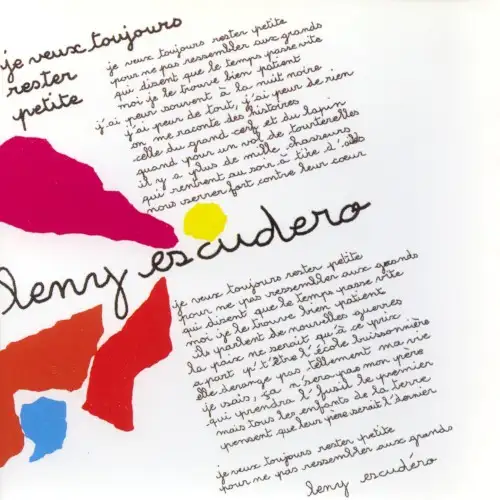 je veux toujours
rester
petite
je veux toujours rester petite
pour ne pas ressembler aux grands
qui disent que le temps passe vite
moi je le trouve bien patient
j'ai peur souvent à la nuit noire
j'ai peur de tout, j'ai peur de rien
on me raconte des histoires
celle du grand cerf et du lapin
quand pour un vol de tourterelles
il y a plus de mille chasseurs
qui rentrent au soir à tire d'ailes
nous serrer fort contre leur cœur
leny escudero
je veux toujours rester petite
pour ne pas ressembler aux grands
qui disent que le temps passe vite
moi je le trouve bien patient
ils parlent de nouvelles guerres
la paix me serait qu'à ce prix
a part p't'être l'école buissonnière
elle derange pas tellement ma vie
je sais, ça n'sera pas mon père
qui prendra l'fusil le premier
mais tous les enfants de la terre
pensent que leur père serait l'dernier
je veux toujours rester petite
pour ne pas ressembler aux grands
leny escudéro